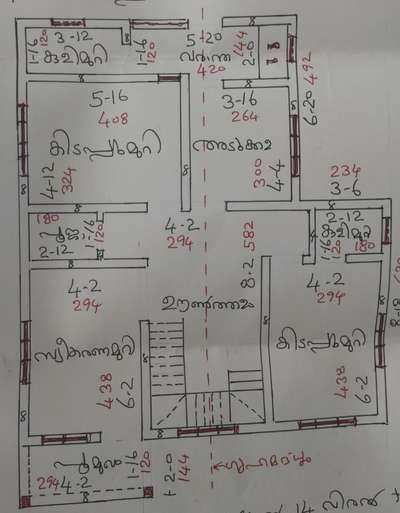 3-12
1-16
120
കുളിമുറി
1-16
120
5-20
വരാന്ത
420
2-0
144
492
6-20
5-16
408
കിടപ്പുമുറി
4-12
324
3-16
264
അടുക്കള
300
4-4
234
3-6
180
പൂജാ
1-16
120
2-12
4-2
294
582
8-2
2-12
കുളിമുറി
1-16
120
180
4-2
294
സ്വീകരണമുറി
438
6-2
ഊൺതളം
4-2
294
കിടപ്പുമുറി
438
6-2
8-18
പൂമുഖം
294 4-2
1-16
120
+2-0
144
ഗൃഹമദ്ധ്യം
14 വിരൽ +